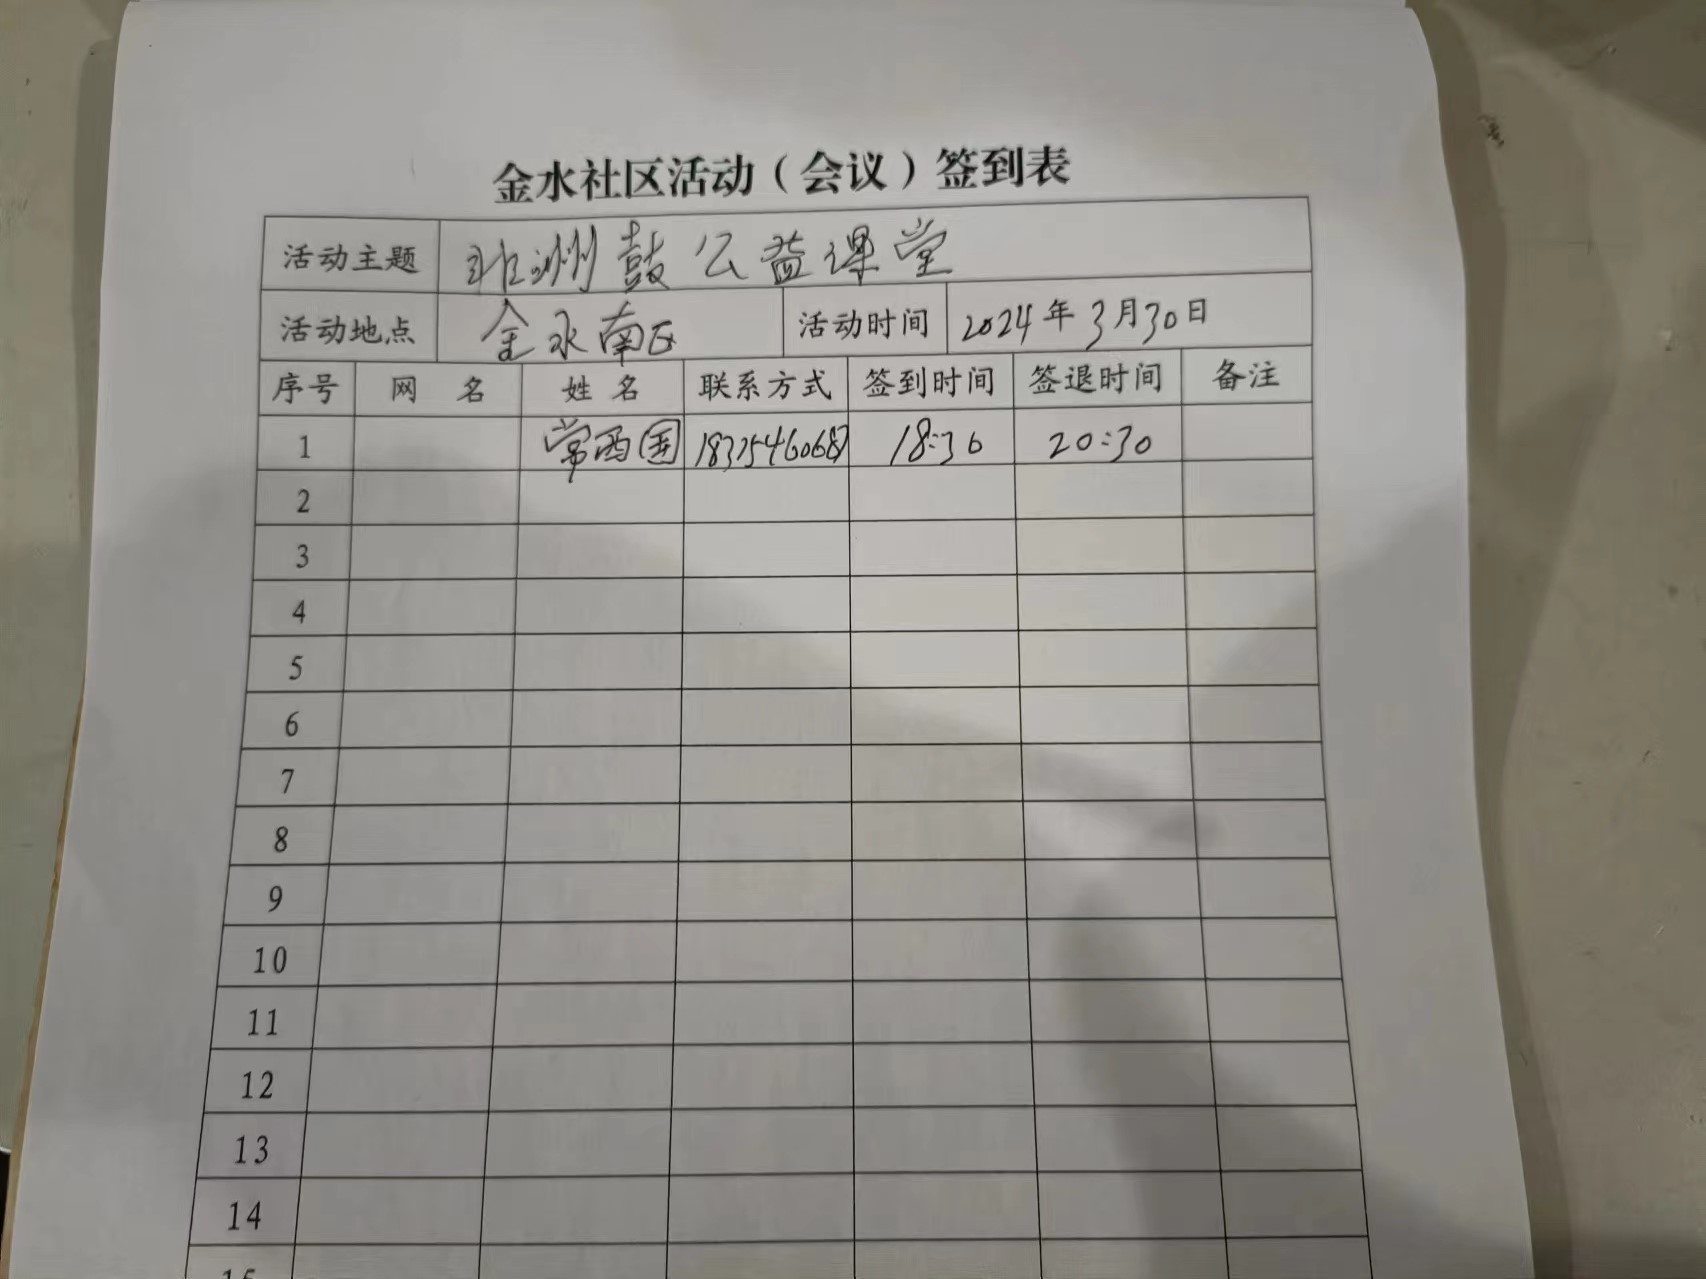 金水社区活动（会议）签到表
活动主题 非洲鼓公益课堂
活动地点 金水南区 活动时间 2024年3月30日
序号 网 名 姓 名 联系方式 签到时间 签退时间 备注
1 常西国 18:30 20:30
2
3
4
5
6
7
8
9
10
11
12
13
14